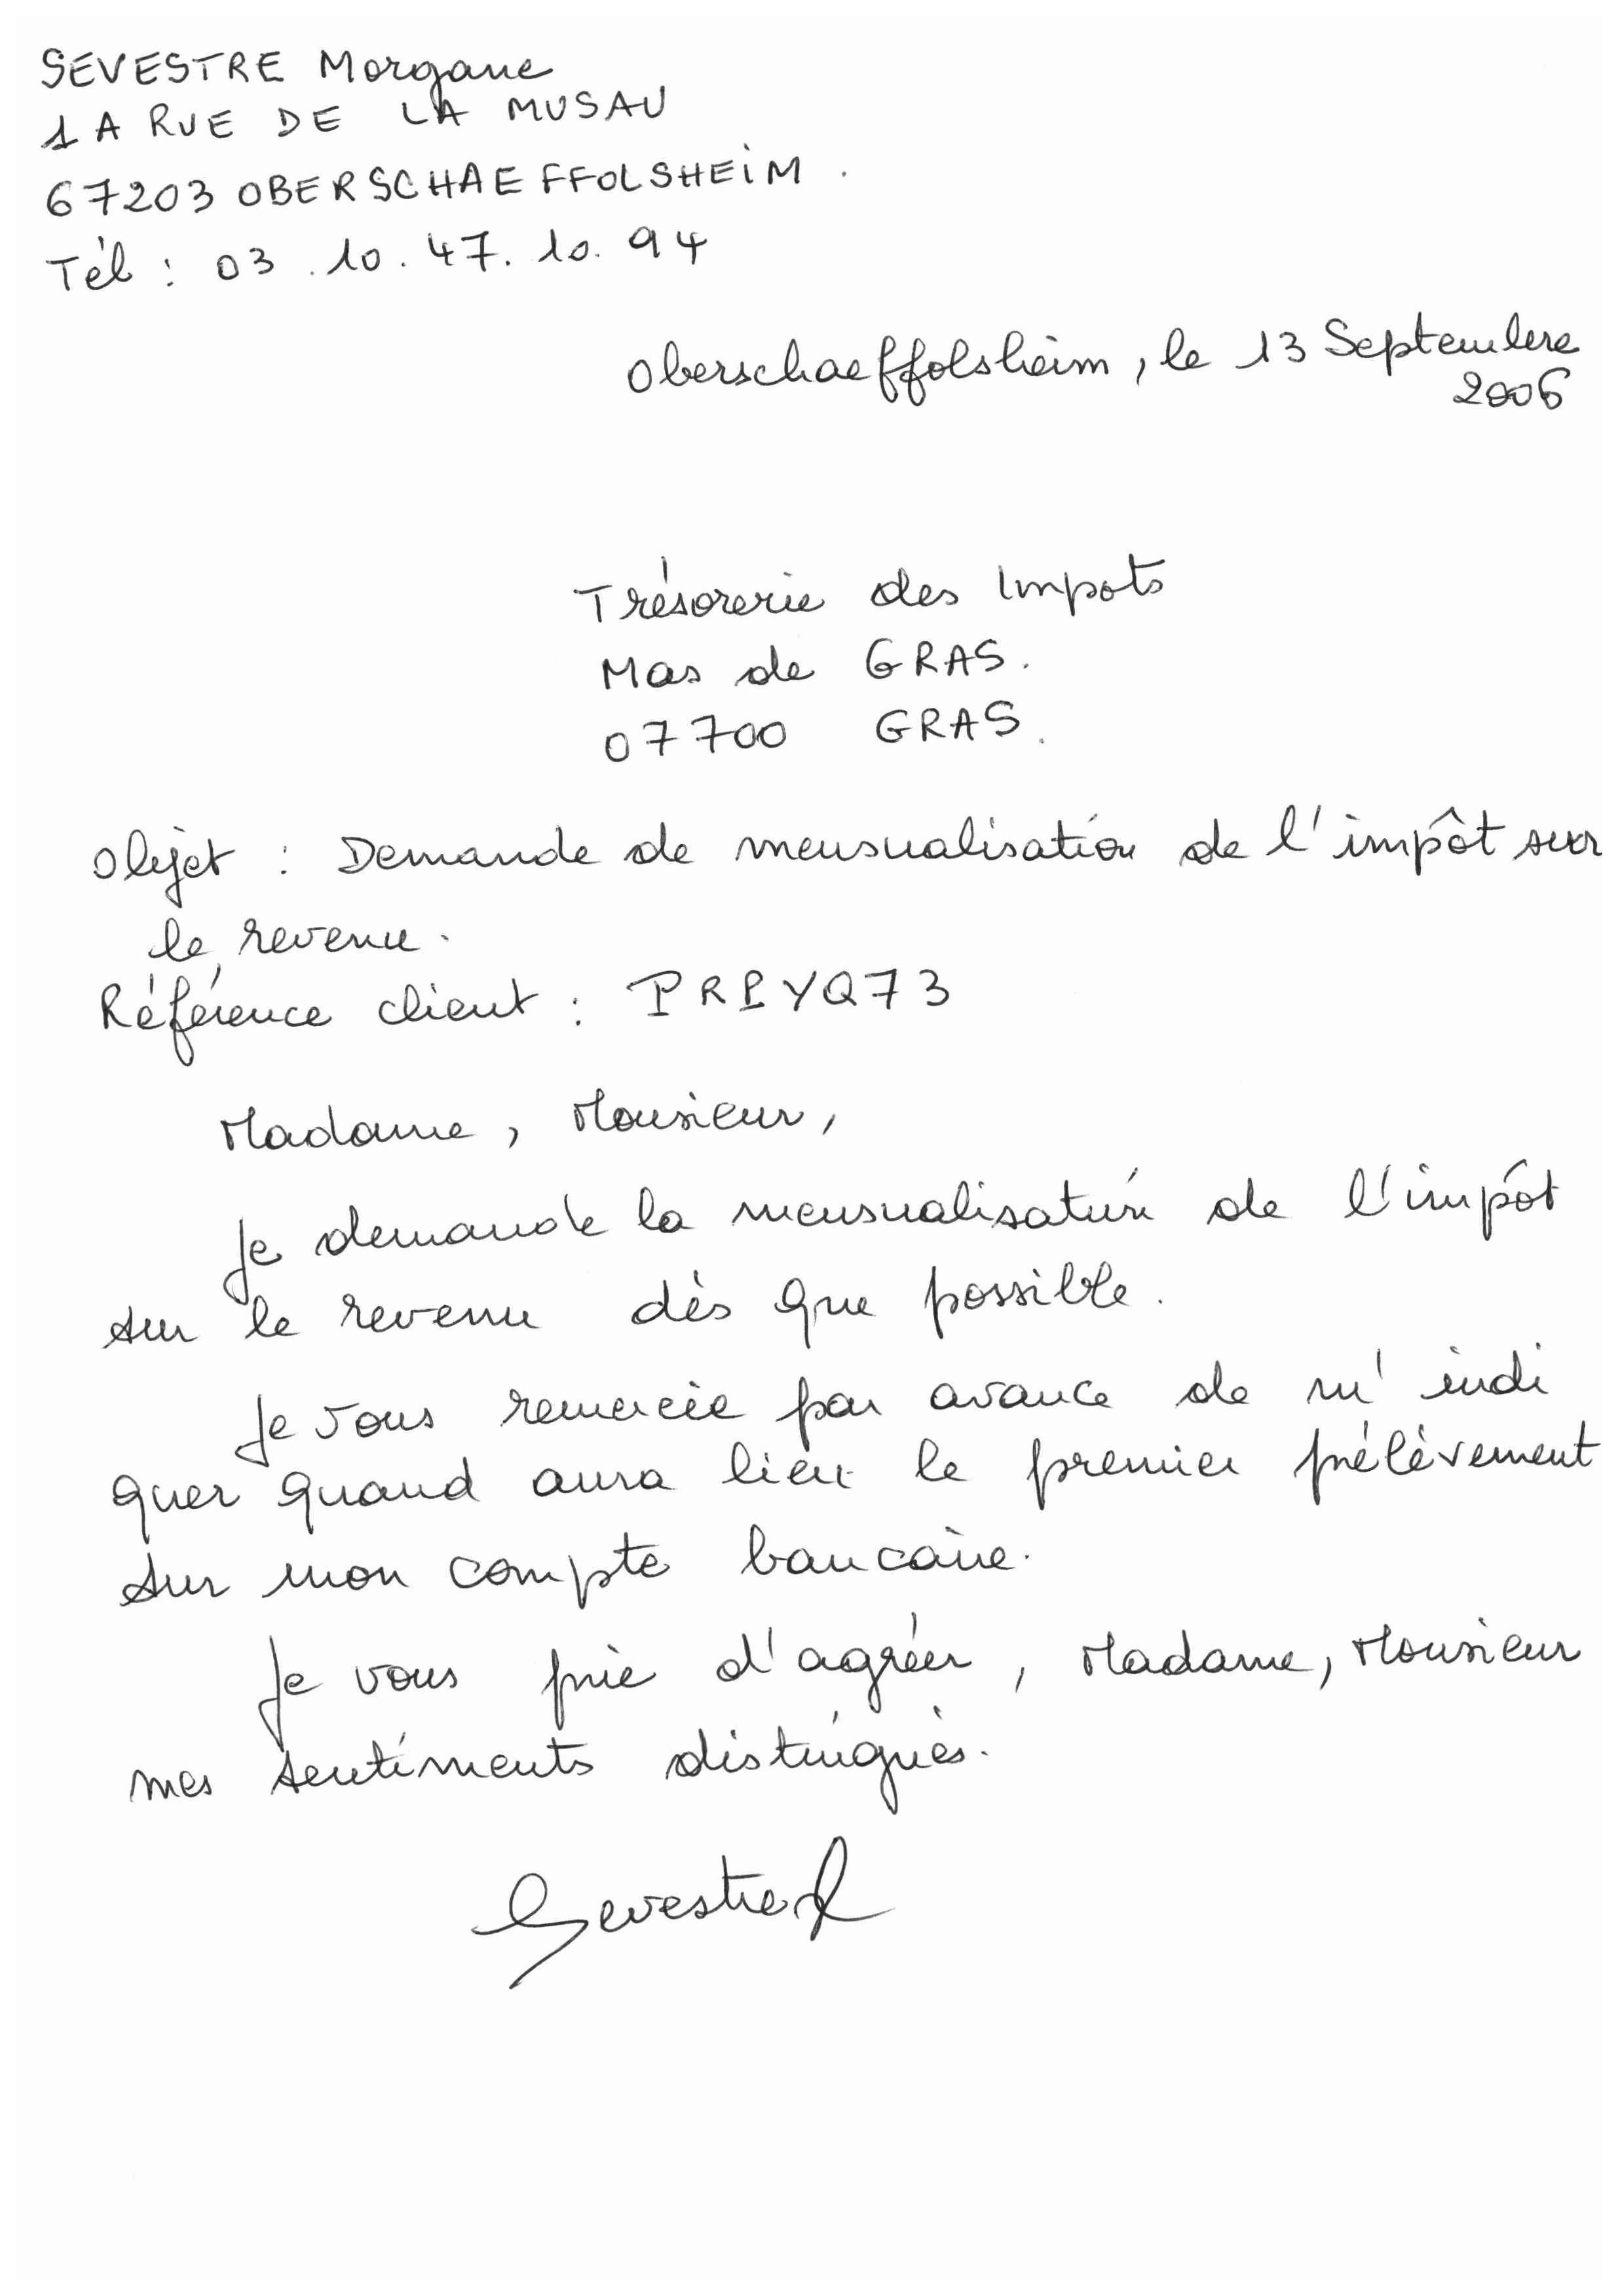 SEVESTRE Morgane
1A RUE DE LA MUSAU
67203 OBERSCHAEFFOLSHEIM.
Tél : 03.10.47.10.94
Oberschaeffolsheim, le 13 Septembre
2006
Trésorerie des Impots
Mas de GRAS.
07700 GRAS.
Objet : Demande de mensualisation de l'impôt sur
le revenu.
Référence client : PRPYQ73
Madame, Monsieur,
Je demande la mensualisation de l'impôt
sur le revenu dès que possible.
Je vous remercie par avance de m'indi
quer quand aura lieu le premier prélèvement
sur mon compte bancaire.
Je vous prie d'agréer, Madame, Monsieur
mes sentiments distingués.
Sevestre